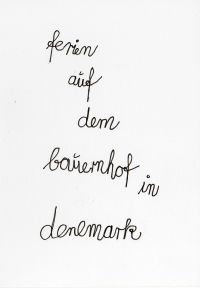 ferien
auf
dem
bauernhof in
denemark